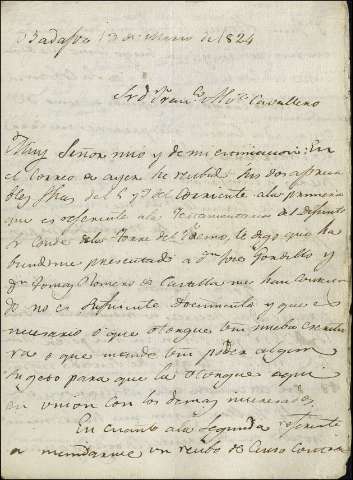 Badajoz 13 de Enero de 1824
Sr. Dn. Fran.co Mo. Cavallero
Muy Señor mio y de mi estimacion: En
el Correo de ayer he recibido sus dos aprecia
bles fhas del 5 y 7 del Corriente a la primera
que es referente a la Testamentaria del difunto
Sr. Conde de la Torre del Fresno, le digo que ha
biendome presentado a Dn. Jose Gordillo y
Dn. Tomas Romero de Castilla me han contesta
do no es suficiente Documento y que es
necesario o que otorgue Vm nueba escritu
ra o que mande Vm poder a algun
sugeto para que la otorgue aqui
en union con los demas interesados
En cuanto a la segunda referente
a mandarme un recibo de Censo contra